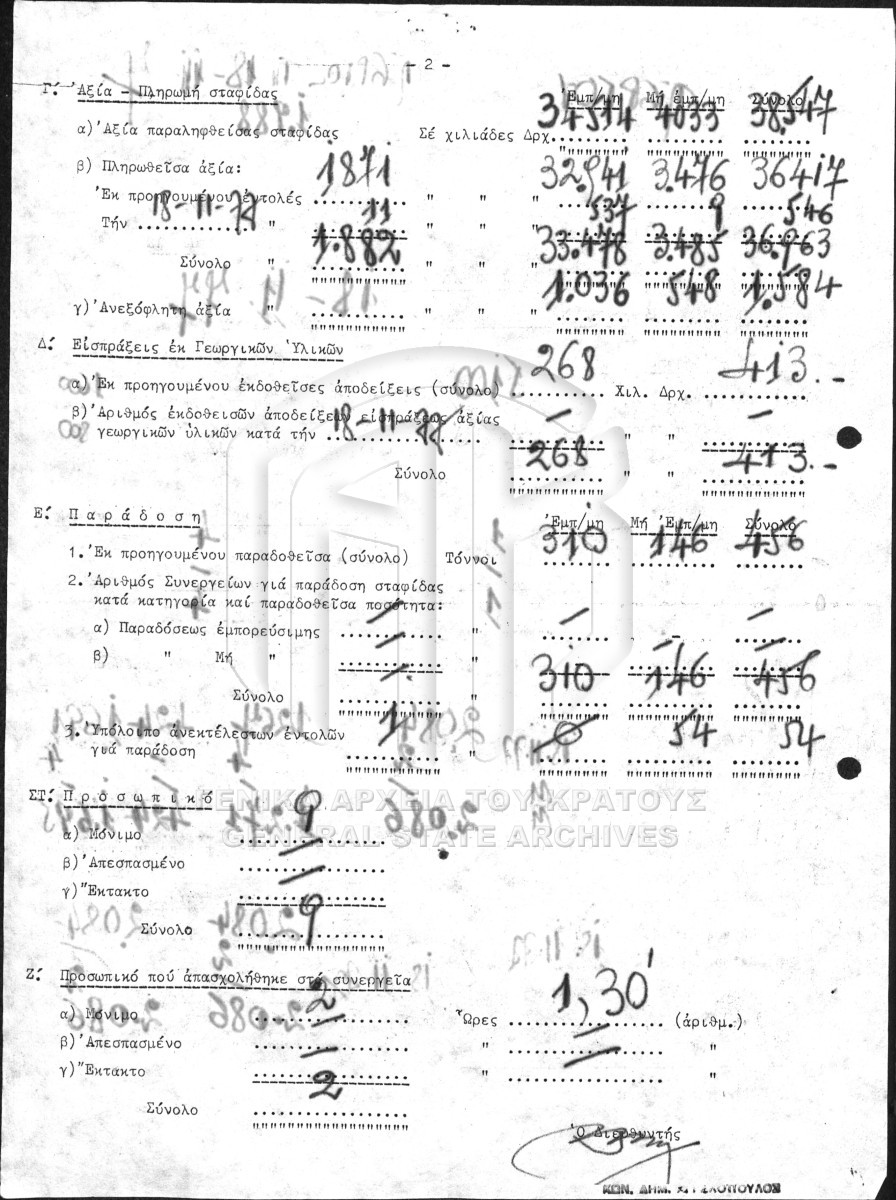 - 2 -
Γ΄. Ἀξία - Πληρωμή σταφίδας Ἐμπ/μη Μή ἐμπ/μη Σύνολο
α) Ἀξία παραληφθείσας σταφίδας Σέ χιλιάδες Δρχ. 34514 4033 38.547
β) Πληρωθεῖσα ἀξία:
Ἐκ προηγουμένου ἐντολές 1871 " " " 32.941 3.476 36417
Τήν 18-11-77 " 11 " " " 537 9 546
Σύνολο " 1.882 " " " 33.478 3.485 36.963
γ) Ἀνεξόφλητη ἀξία " " " " 1.036 548 1.584
Δ΄. Εἰσπράξεις ἐκ Γεωργικῶν Ὑλικῶν
α) Ἐκ προηγουμένου ἐκδοθεῖσες ἀποδείξεις (σύνολο) 268 Χιλ. Δρχ. 413.-
β) Ἀριθμός ἐκδοθεισῶν ἀποδείξεων εἰσπράξεως ἀξίας
γεωργικῶν ὑλικῶν κατά τήν 18-11-77 - " " -
Σύνολο 268 " " 413.-
Ε΄. Παράδοση Ἐμπ/μη Μή Ἐμπ/μη Σύνολο
1. Ἐκ προηγουμένου παραδοθεῖσα (σύνολο) Τόννοι 310 146 456
2. Ἀριθμός Συνεργείων γιά παράδοση σταφίδας
κατά κατηγορία καί παραδοθεῖσα ποσότητα:
α) Παραδόσεως ἐμπορεύσιμης - " - - -
β) " Μή " - " - - -
Σύνολο - " 310 146 456
3. Ὑπόλοιπο ἀνεκτέλεστων ἐντολῶν
γιά παράδοση 1 " 0 54 54
ΓΕΝΙΚΑ ΑΡΧΕΙΑ ΤΟΥ ΚΡΑΤΟΥΣ
GENERAL STATE ARCHIVES
ΣΤ΄. Προσωπικό
α) Μόνιμο 9
β) Ἀπεσπασμένο -
γ) Ἔκτακτο -
Σύνολο 9
Ζ΄. Προσωπικό πού ἀπασχολήθηκε στά συνεργεῖα
α) Μόνιμο 2 Ὧρες 1,30' (ἀριθμ.)
β) Ἀπεσπασμένο - " - "
γ) Ἔκτακτο - " - "
Σύνολο 2
Ὁ Διευθυντής
ΚΩΝ. ΔΗΜ.